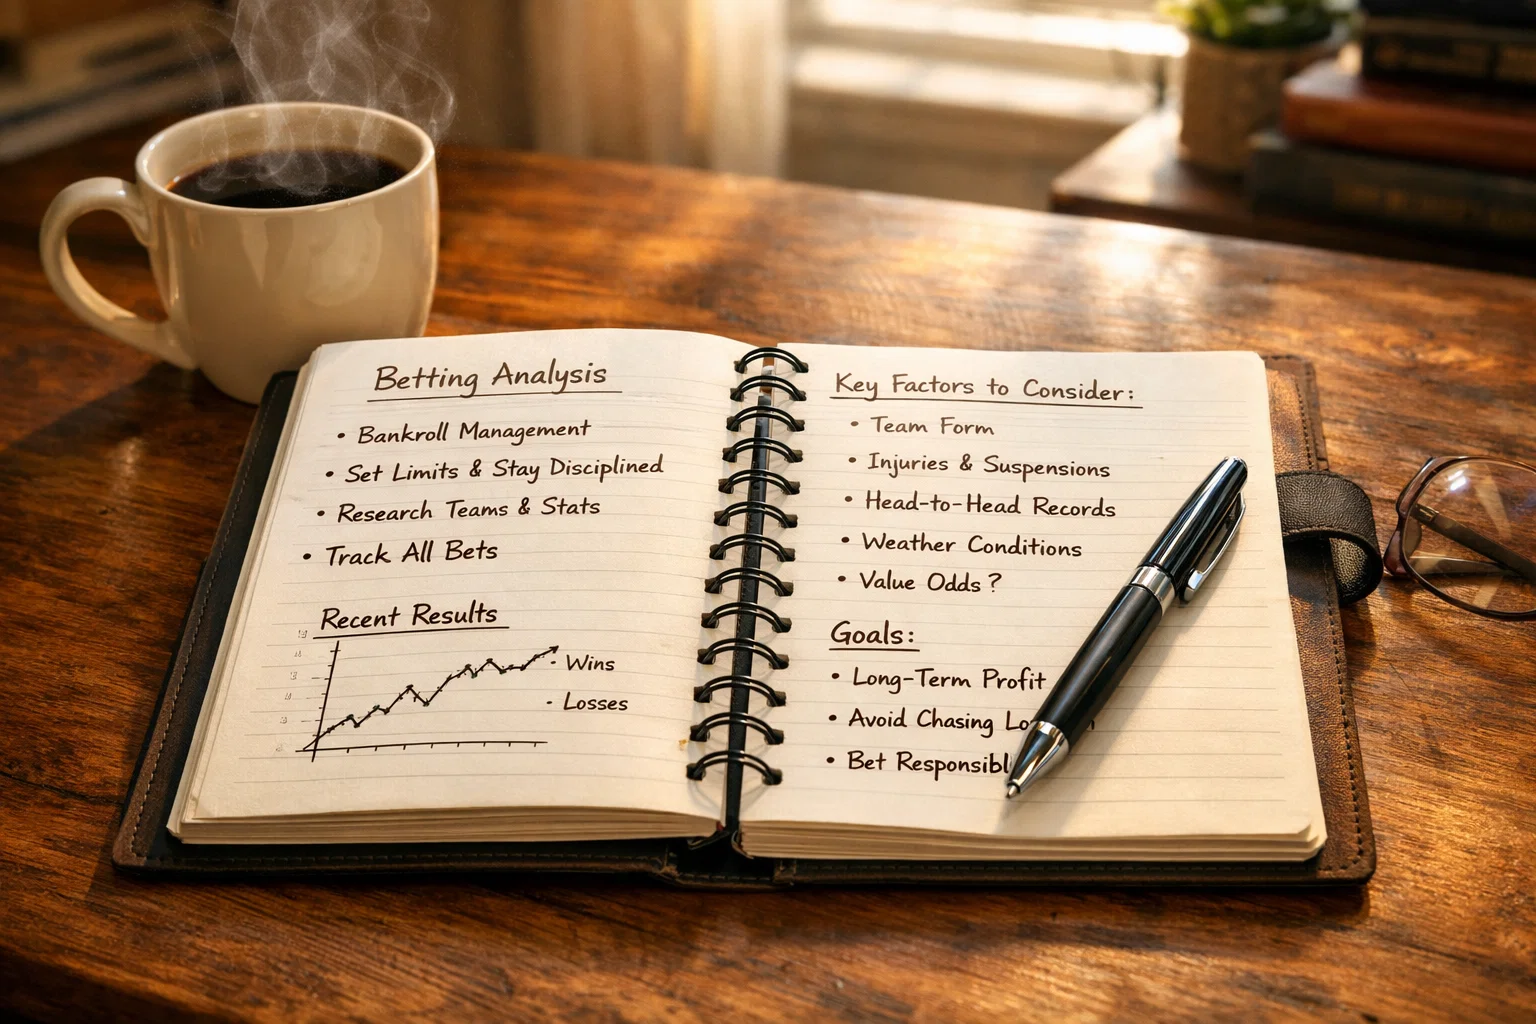 Betting Analysis
• Bankroll Management
• Set Limits & Stay Disciplined
• Research Teams & Stats
• Track All Bets
Recent Results
· Wins
· Losses
Key Factors to Consider:
• Team Form
• Injuries & Suspensions
• Head-to-Head Records
• Weather Conditions
• Value Odds?
Goals:
• Long-Term Profit
• Avoid Chasing
• Bet